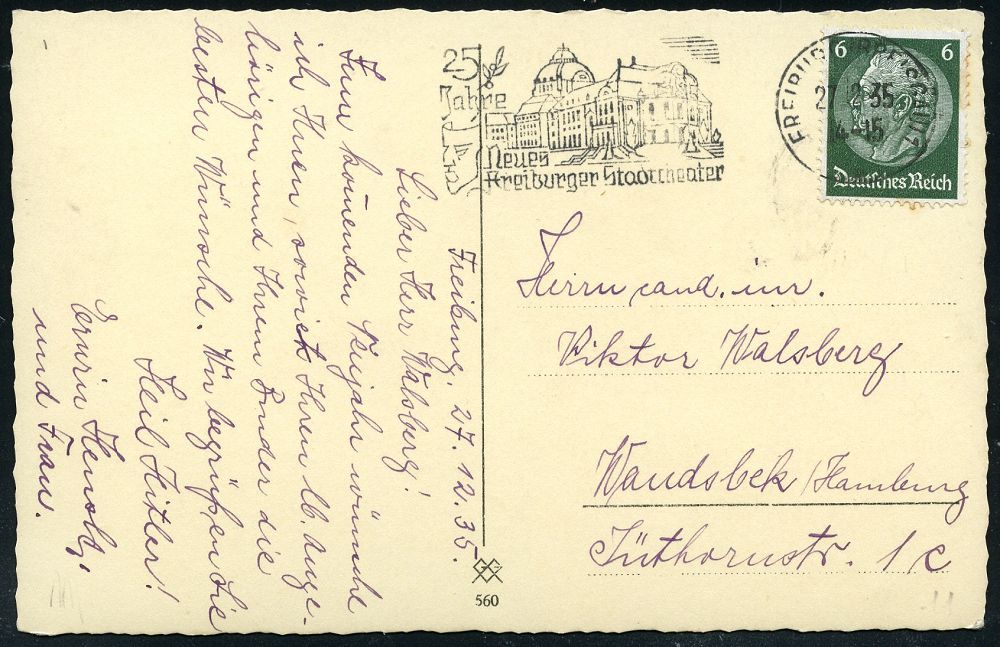 Freiburg. 27.12.35.
Lieber Herr Walsberg!
Zum kommenden Neujahr wünsche
ich Ihnen, sowie Ihren lb. Ange-
hörigen und Ihrem Bruder die
besten Wünsche. Wir begrüßen Sie
Heil Hitler!
Erwin
und Frau.
25
Jahre
Neues
Freiburger Stadttheater
FREIBURG BREISGAU
27 2 35
4-15
6 6
Deutsches Reich
Herrn cand. iur.
Viktor Walsberg
Wandsbek/Hamburg
Jüthornstr. 1c
560